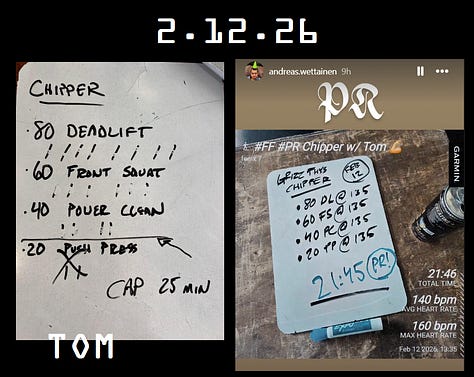 2.12.26
CHIPPER
· 80 DEADLIFT
· 60 FRONT SQUAT
· 40 POWER CLEAN
· 20 PUSH PRESS
CAP 25 MIN
TOM
andreas.wettainen 9h
PR
#FF #PR Chipper w/ Tom 💪
fenix 7
GARMIN
FEB 12
CHIPPER
· 80 DL @ 135
· 60 FS @ 135
· 40 PC @ 135
· 20 PP @ 135
21:45 PR!
21:46
TOTAL TIME
140 bpm
AVG HEART RATE
160 bpm
MAX HEART RATE
Feb 12 2026, 13:35